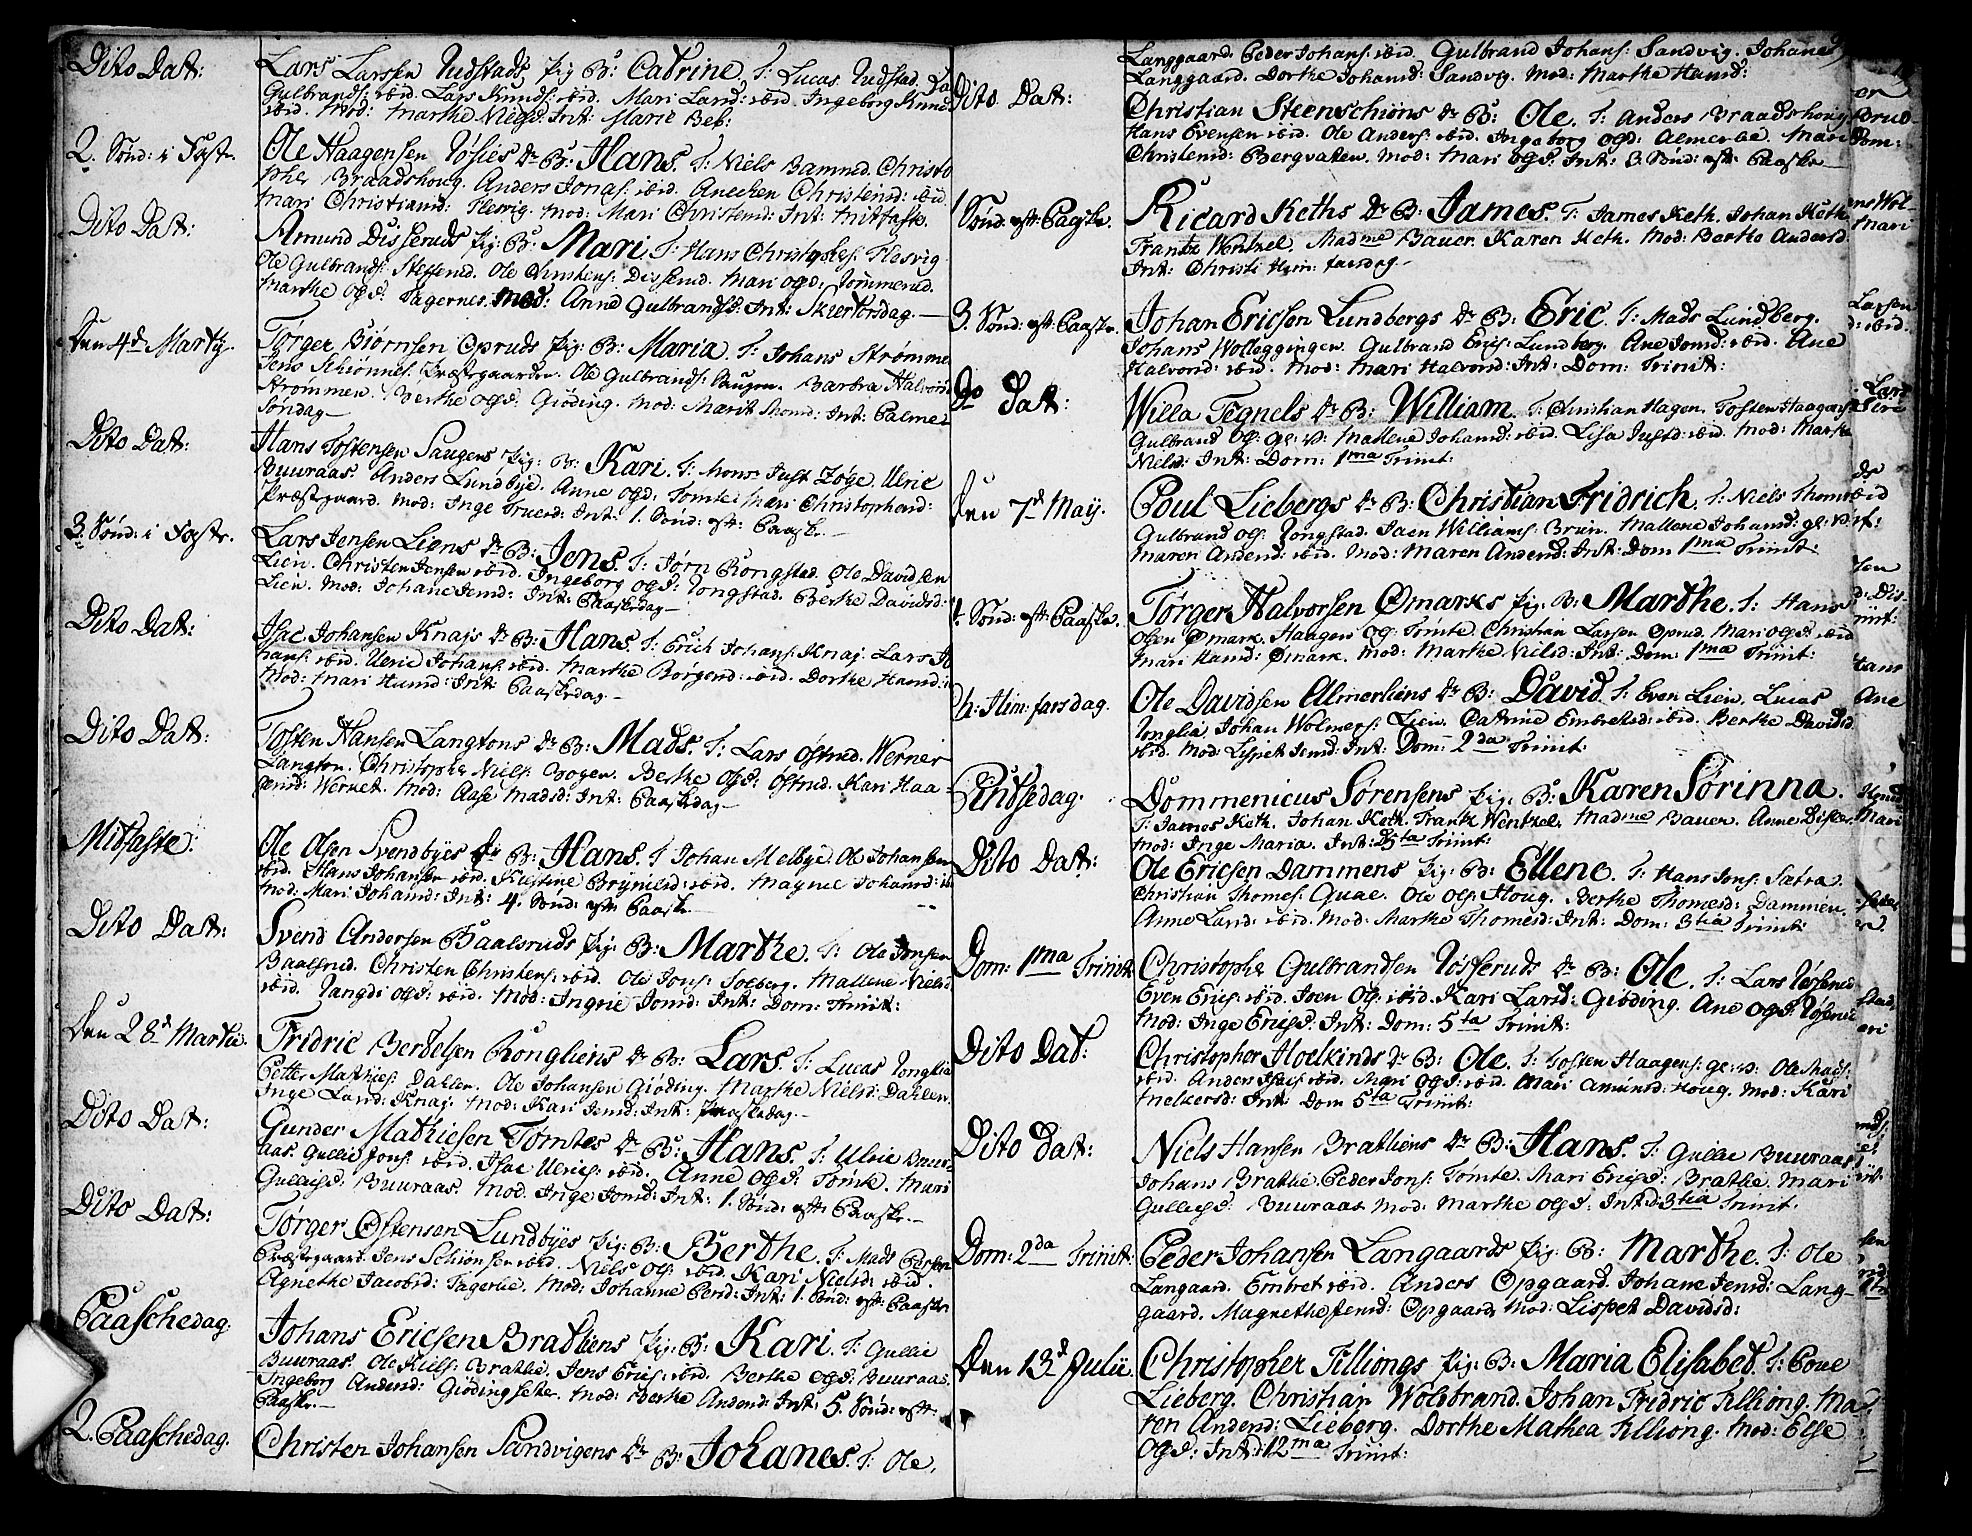 Dito Dat:
Lars Larssen Rudstads Pig: B: Catrine. T: Lucas Rudstad.
Gulbrands: ibid. Lars Knuds: ibid. Mari Larsd: ibid. Ingeborg Knud
ibid. Mod: Marthe Nielsd: Int: Marie Beb:
2. Sønd: i Faste.
Ole Haagensen Røsies Dr: B: Hans. T: Niels Bamned. Christo
pher Braadshoug. Anders Jonas: ibid. Anechen Christensd: ibid
Mari Christiansd: Flesvig. Mod: Mari Christensd: Int: Mitfaste.
Dito Dat:
Amund Disseruds Pig: B: Mari. T: Hans Christophs: Flesvig
Ole Gulbrands: Steffensd. Ole Disserud. Mari Ogsd:
Marthe Olsd: Fagernes. Mod: Anne Gulbrandsd: Int: Skiertorsdag.
Den 4de Marty.
Tørger Biørnsen Opruds Pig: B: Maria. T: Johans Strømme
Jens Schiønnes. Præstgaarden. Ole Gulbrands: Saugen. Barbra Halvorsd
Strømmen. Berthe Olsd: Giøding. Mod: Marit Thomd: Int: Palme
Søndag
Dito Dat:
Hans Tostensen Saugens Pig: B: Kari. T: Mons: Just Zøge. Ulric
Buuraas. Anders Lundbye. Anne Olsd: Tomte. Mari Christophersd:
Præstgaard. Mod: Inge Truersd: Int: 1. Sønd: eft: Paaske.
3. Sønd: i Faste.
Lars Jensen Liens Dr: B: Jens. T: Jørn Rongstad. Ole Davidsen
Lien. Christen Jensen ibid. Ingeborg Olsd: Rongstad. Berthe Davidsd:
Lien. Mod: Johane Jensd: Int: Paaskedag
Dito Dat:
Isac Johansen Knajs Dr: B: Hans. T: Erich Johans: Knaj. Lars Jo
hans: ibid. Ulric Johans: ibid. Marthe Børgersd: ibid. Dorthe Hansd:
Mod: Mari Hansd: Int: Paaskedag
Dito Dat:
Tosten Hansen Langtons Dr: B: Mads. T: Lars Østrud. Werner
Langton. Christopher Niels: Bogen. Berthe Olsd: Østrud. Kari Haa
gensd: Wernet. Mod: Aase Madsd: Int: Paaskedag
Mitfaste:
Ole Olsen Svendbyes Pig: B: Hans. T: Johan Melbye. Ole Johansen
ibid. Hans Johansen ibid. Kirstine Brynilsd: ibid. Magnel Johansd:
Mod: Mari Johansd: Int: 4. Sønd: eft: Paaske
Dito Dat:
Svend Andersen Baalsruds Pig: B: Marthe. T: Ole Jonsen
Baalsrud. Christen Christens: ibid. Ole Jons: Solberg. Mallene Nielsd
ibid. Rangdi Olsd: ibid. Mod: Ingrie Jonsd: Int: Dom: Trinit:
Den 28de Martii.
Fridric Bertelsen Rongliens Dr: B: Lars. T: Lucas Ronglia
Petter Mathies: Dahlen. Ole Johansen Giøding. Marthe Nielsd: Dahlen.
Inge Larsd: Knaj. Mod: Kari Jensd: Int: Paaskedag.
Dito Dat:
Gunder Mathiesen Tømtes Dr: B: Hans. T: Ulric Buur
aas. Gullic Jons: ibid. Isac Ulrics: ibid. Anne Olsd: Tømte. Mari
Gullicsd: Buuraas. Mod. Inge Jonsd: Int: 1. Sønd: eft: Paaske.
Dito Dat:
Tørger Østensen Lundbyes Pig: B: Berthe. T: Mads Persen
Præstgaard. Jens Schiønsen ibid. Niels Ols: ibid. Kari Nielsd: ibid.
Agnethe Jacobsd: Fagerlie. Mod: Johanne Persd: Int: 1. Sønd: eft: Paaske
Paaschedag.
Johans Ericsen Brathens Pig: B: Kari. T: Gullic
Buuraas. Ole Niels: Brathe. Jens Erics: ibid. Berthe Olsd: Buuraas.
Ingeborg Andersd: Giødingseter. Mod: Berthe Andersd: Int: 5. Sønd: eft:
Paaske.
2. Paaschedag.
Christen Johansen Sandvigens Dr: B: Johanes. T: Ole
Langgaard. Peder Johans: ibid. Gulbrand Johans: Sandvig. Johane
Langgaard. Dorthe Johansd: Sandvig. Mod: Marthe Hansd:
Dito Dat:
Christian Steenschiøns Dr: B: Ole. T: Anders Braadshoug
Hans Evensen ibid. Ole Anders: ibid. Ingeborg Olsd: Almerlie. Mari
Christensd: Bergvatten. Mod: Mari Olsd: Int: 3. Sønd: eft: Paaske
1. Sønd: eft: Paaske.
Ricard Keths Dr: B: James. T: James Keth. Johan Keth
Frantz Wentzel. Madme Bauer. Karen Keth. Mod: Berthe Andersd.
Int: Christi Him: farsdag
3. Sønd: eft: Paaske.
Johan Ericsen Lundbergs Dr: B: Eric. T: Mads Lundberg.
Johans Wolleggingen. Gulbrand Erics: Lundberg. Ane Jonsd: ibid. Ane
Halvorsd: ibid. Mod: Mari Halvorsd: Int: Dom: Trinit:
Do Dat:
Willa Tegnels Dr: B: William. T: Christian Hagen. Tosten Haagens:
Gulbrand Ols: gl: v: Mallene Johansd: ibid. Lisa Justd: ibid. Mod: Marthe
Nielsd: Int: Dom: 1ma Trinit:
Den 7de Maij.
Poul Liebergs Dr: B: Christian Fridrich. T: Niels Thoms
Gulbrand Ols: Rongstad. Jaen Williams: Bruin. Mallene Johansd: gl: v:
Maren Andersd: ibid. Mod: Maren Andersd: Int: Dom 1ma Trinit:
4. Sønd: eft: Paaske.
Tørger Halvorsen Ømarks Pig: B: Marthe. T: Hans
Olsen Ømark. Haagen Ols: Tømte. Christian Larsen Oprud. Mari Olsd: ibid
Mari Hansd: Ømark. Mod: Marthe Nielsd: Int: Dom: 1ma Trinit:
Ch: Him: farsdag.
Ole Davidsen Almerliens Dr: B: David. T: Even Lien. Lucas
Ronglia. Johan Wolmers: Lien. Catrine Embretsd: ibid. Berthe Davidsd.
ibid. Mod: Lispet Jensd: Int: Dom: 2da Trinit:
Pintsedag.
Dommenicus Sørensens Pig: B: Karen Sørinna.
T: James Keth. Johan Keth. Frantz Wentzel. Madme Bauer. Anne
Mod: Inge Maria. Int: D: 5ta Trinit:
Dito Dat:
Ole Ericsen Dammens Pig: B: Ellene. T: Hans Jens: Sætra.
Christian Thomes: Quae. Ole Ols: Houg. Berthe Thomesd: Dammen.
Anne Larsd: ibid. Mod: Marthe Thomesd: Int: Dom: 3tia Trinit:
Dom: 1ma Trinit:
Christopher Gulbrandsen Røsseruds Dr: B: Ole. T: Lars Røsserud
Even Erics: ibid. Joen Ols: ibid. Kari Larsd: Giøding. Ane Olsd: Røserud
Mod: Inge Ericsd: Int: Dom: 5ta Trinit:
Dito Dat:
Christopher Hoelkinds Dr: B: Ole. T: Tosten Haagens: gl: v: Ole Mads:
ibid. Anders Isacs: ibid. Mari Olsd: ibid. Mari Amundsd: Houg. Mod: Kari
Melkersd: Int: Dom 5ta Trinit:
Dito Dat:
Niels Hansen Brathens Dr: B: Hans. T: Gullic Buuraas
Johans Brathe. Peder Jons: Tømte. Mari Ericsd: Brathe. Mari
Gullicsd: Buuraas. Mod: Marthe Olsd: Int: D: 3tia Trinit.
Dom: 2da Trinit:
Peder Johansen Langaards Pig: B: Marthe. T: Ole
Langaard. Embret ibid. Anders Opgaard. Johane Jensd: Lang-
gaard. Magnethe Jensd: Opgaard. Mod: Lispet Davidsd:
Den 13de Julii.
Christopher Tillions Pig: B: Maria Elisabet. T: Poue
Lieberg. Christian Wolbrand. Johan Fridric Tilliong. Ma
ren Andersd: Lieberg. Dorthe Mathea Tilliong. Mod: Else
Olsd: Int: D: 12ma Trinit: